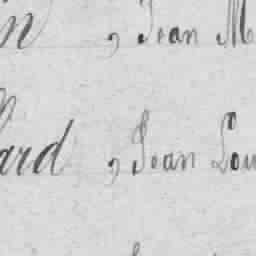 in , Jean M
ard , Jean Lou